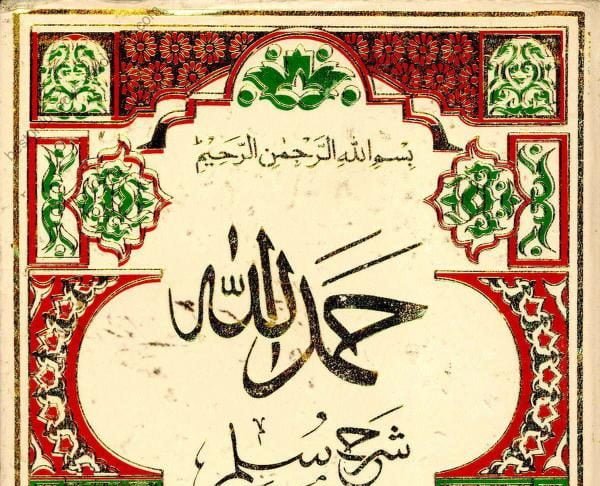 بسم الله الرحمٰن الرحيم
حمد الله
شرح سلم